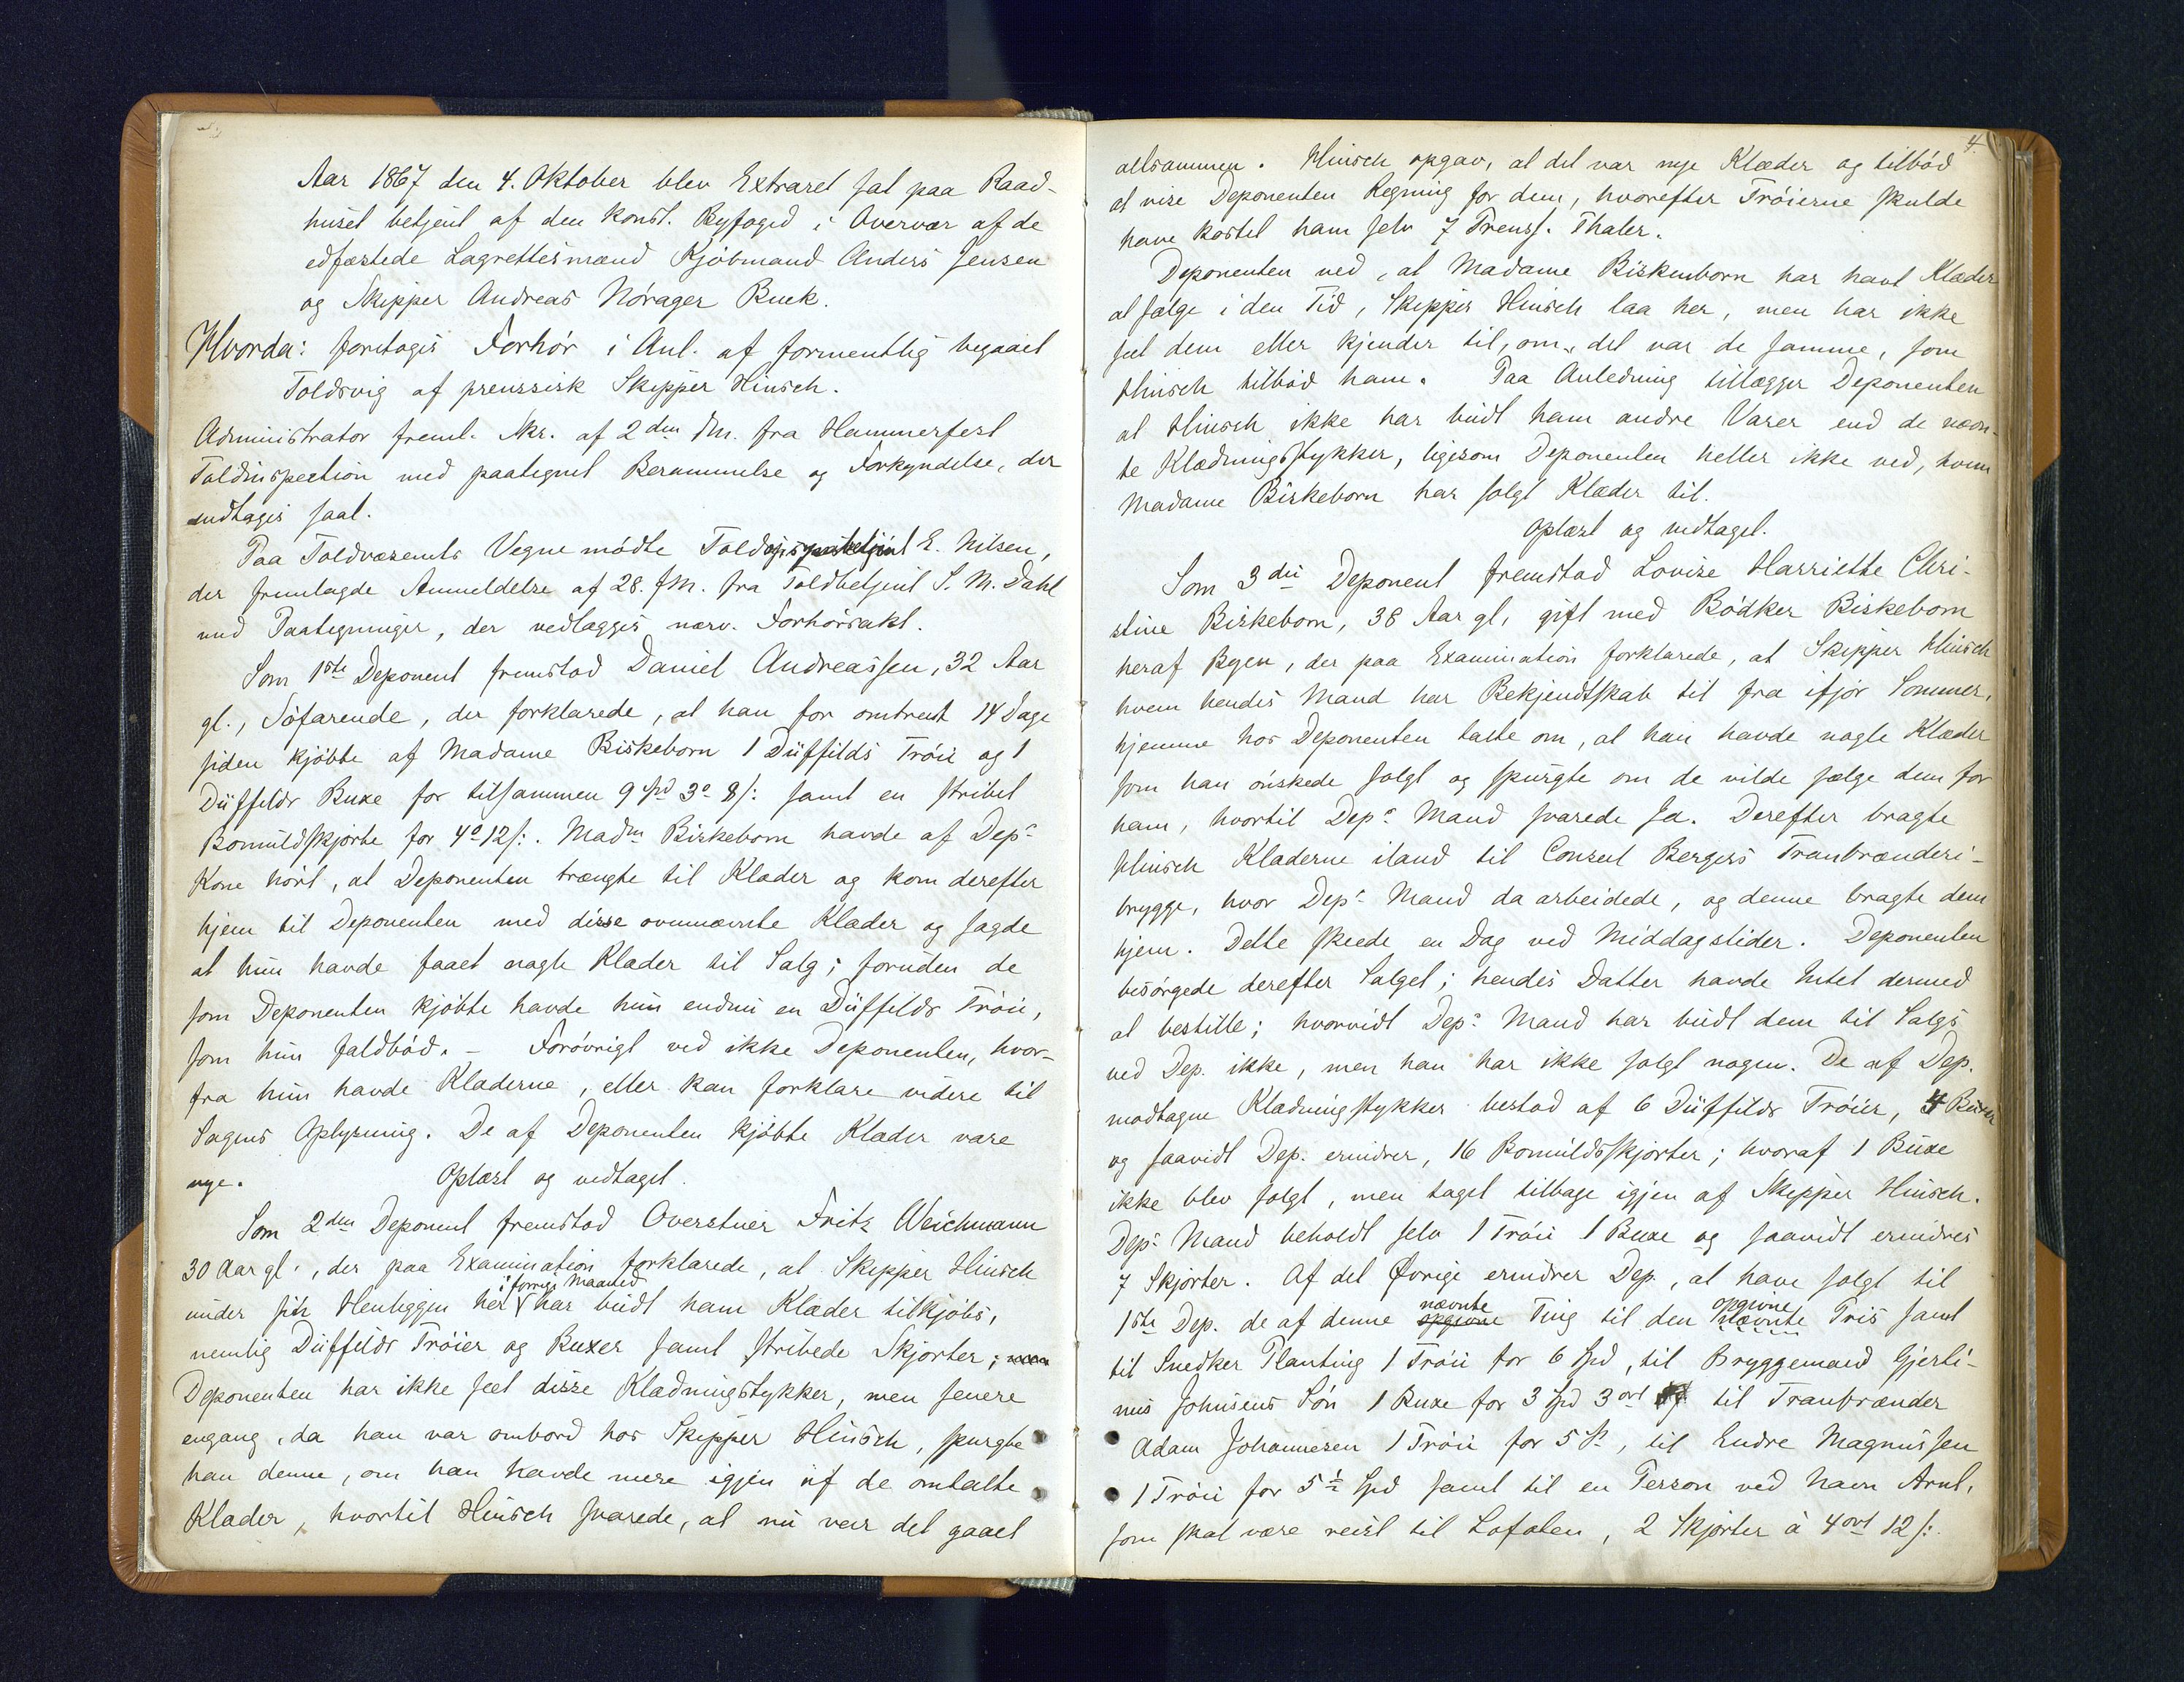 Aar 1867 den 4. Oktober blev Extraret sat paa Raad-
huset betjent af den konst. Byfoged i Overvær af de
edfæstede Lagrettesmænd Kjøbmand Anders Jensen
og Skipper Andreas Nórager Buck.
Hvorda: foretoges Forhør i Anl. af formentlig begaaet
Toldsvig af preussisk Skipper Hinsch.
Administrator freml. Skr. af 2den ds. fra Hammerfest
Toldinspection med paategnet Berammelse og Forkyndelse, der
indtages saal.
Paa Toldvæsenets Vegne mødte E. Nilsen,
der fremlagde Anmeldelse af 28. f.M. fra Toldbetjent S. M. Dahl
med Paategninger, der vedlægges nærv. Forhørsakt.
Som 1ste Deponent fremstod Daniel Andreassen, 32 Aar
gl., Søfarende, der forklarede, at han for omtrent 14 Dage
siden kjøbte af Madame Birkeborn 1 Düffelds Trøie og 1
Düffelds Buxe for tilsammen 9 Spd 3o 8s: samt en stribet
Bomuldsskjorte for 4o 12s:. Madm Birkeborn havde af Deps
Kone hørt, at Deponenten trængte til Klæder og kom derefter
hjem til Deponenten med disse ovennævnte Klæder og sagde
at hun havde faaet nogle Klæder til Salg; foruden de
som Deponenten kjøbte havde hun endnu en Düffelds Trøie,
som hun faldbød. – Forøvrigt ved ikke Deponenten, hvor-
fra hun havde Klæderne, eller kan forklare videre til
Sagens Oplysning. De af Deponenten kjøbte Klæder vare
nye. Oplæst og vedtaget.
Som 2den Deponent fremstod Overstuer Fritz Weichmann
30 Aar gl., der paa Examination forklarede, at Skipper Hinsch
i forrige Maaned
under sin Henliggen her har budt ham Klæder tilkjøbs,
nemlig Düffelds Trøier og Buxer samt stribede Skjorter; men
Deponenten har ikke seet disse Klædningsstykker, men senere
engang, da han var ombord hos Skipper Hinsch, spurgte
han denne, om han havde mere igjen af de omtalte
Klæder, hvortil Hinsch svarede, at nu var det gaaet
4.
allsammen. Hinsch opgav, at det var nye Klæder og tilbød
at vise Deponenten Regning for dem, hvorefter Trøierne skulde
have kostet ham selv 7 Preuss. Thaler.
Deponenten ved, at Madame Birkenborn har havt Klæder
at sælge i den Tid, Skipper Hinsch laa her, men har ikke
seet dem eller kjender til, om det var de samme, som
Hinsch tilbød ham. Paa Anledning tillægger Deponenten
at Hinsch ikke har budt ham andre Varer end de nævn-
te Klædningsstykker, ligesom Deponenten heller ikke ved, hvem
Madame Birkeborn har solgt Klæder til.
Oplæst og vedtaget.
Som 3die Deponent fremstod Lovise Harriette Chri-
stine Birkeborn, 38 Aar gl, gift med Bødker Birkeborn
heraf Byen, der paa Examination forklarede, at Skipper Hinsch
hvem hendes Mand har Bekjendtskab til fra ifjor Sommer,
hjemme hos Deponenten talte om, at han havde nogle Klæder
som han ønskede solgt og spurgte om de vilde sælge dem for
ham, hvortil Deps Mand svarede Ja. Derefter bragte
Hinsch Klæderne iland til Consul Bergers Tranbrænderi-
brygge, hvor Deps Mand da arbeidede, og denne bragte dem
hjem. Dette skeede en Dag ved Middagstider. Deponenten
besørgede derefter Salget; hendes Datter havde Intet dermed
at bestille; hvorvidt Deps Mand har budt dem til Salgs
ved Dep. ikke, men han har ikke solgt nogen. De af Dep.
modtagne Klædningsstykker bestod af 6 Düffelds Trøier, 4 Buxer
og saavidt Dep. erindrer, 16 Bomuldsskjorter; hvoraf 1 Buxe
ikke blev solgt, men taget tilbage igjen af Skipper Hinsch.
Deps Mand beholdt selv 1 Trøie 1 Buxe og saavidt erindres
7 Skjorter. Af det Øvrige erindrer Dep., at have solgt til
nævnte opgivne
1ste Dep. de af denne opgivne Ting til den nævnte Pris samt
til Snedker Planting 1 Trøie for 6 Spd, til Bryggemand Gjerti-
nus Johnsens Søn 1 Buxe for 3 Spd 3 ort til Tranbrænder
Adam Johannesen 1 Trøie for 5 S., til Endre Magnussen
1 Trøie for 5½ Spd samt til en Person ved Navn Arnt,
som skal være reist til Lofoten, 2 Skjorter à 4 ort 12 s:.